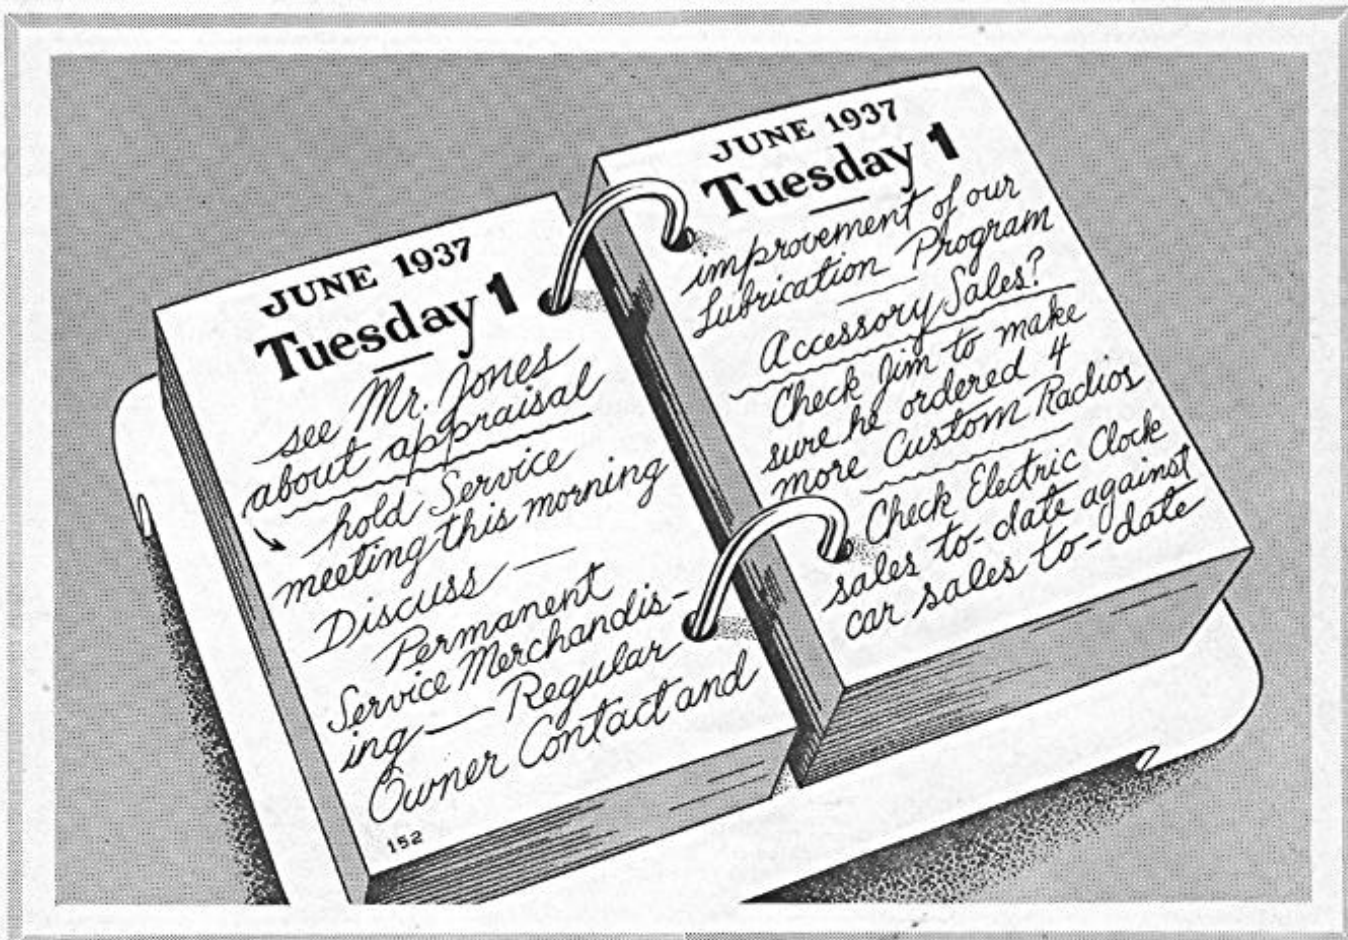 JUNE 1937
Tuesday 1
see Mr. Jones
about appraisal
hold Service
meeting this morning
Discuss —
Permanent
Service Merchandis-
ing — Regular
Owner Contact and
152
JUNE 1937
Tuesday 1
improvement of our
Lubrication Program
Accessory Sales?
Check Jim to make
sure he ordered 4
more Custom Radios
Check Electric Clock
sales to-date against
car sales to-date